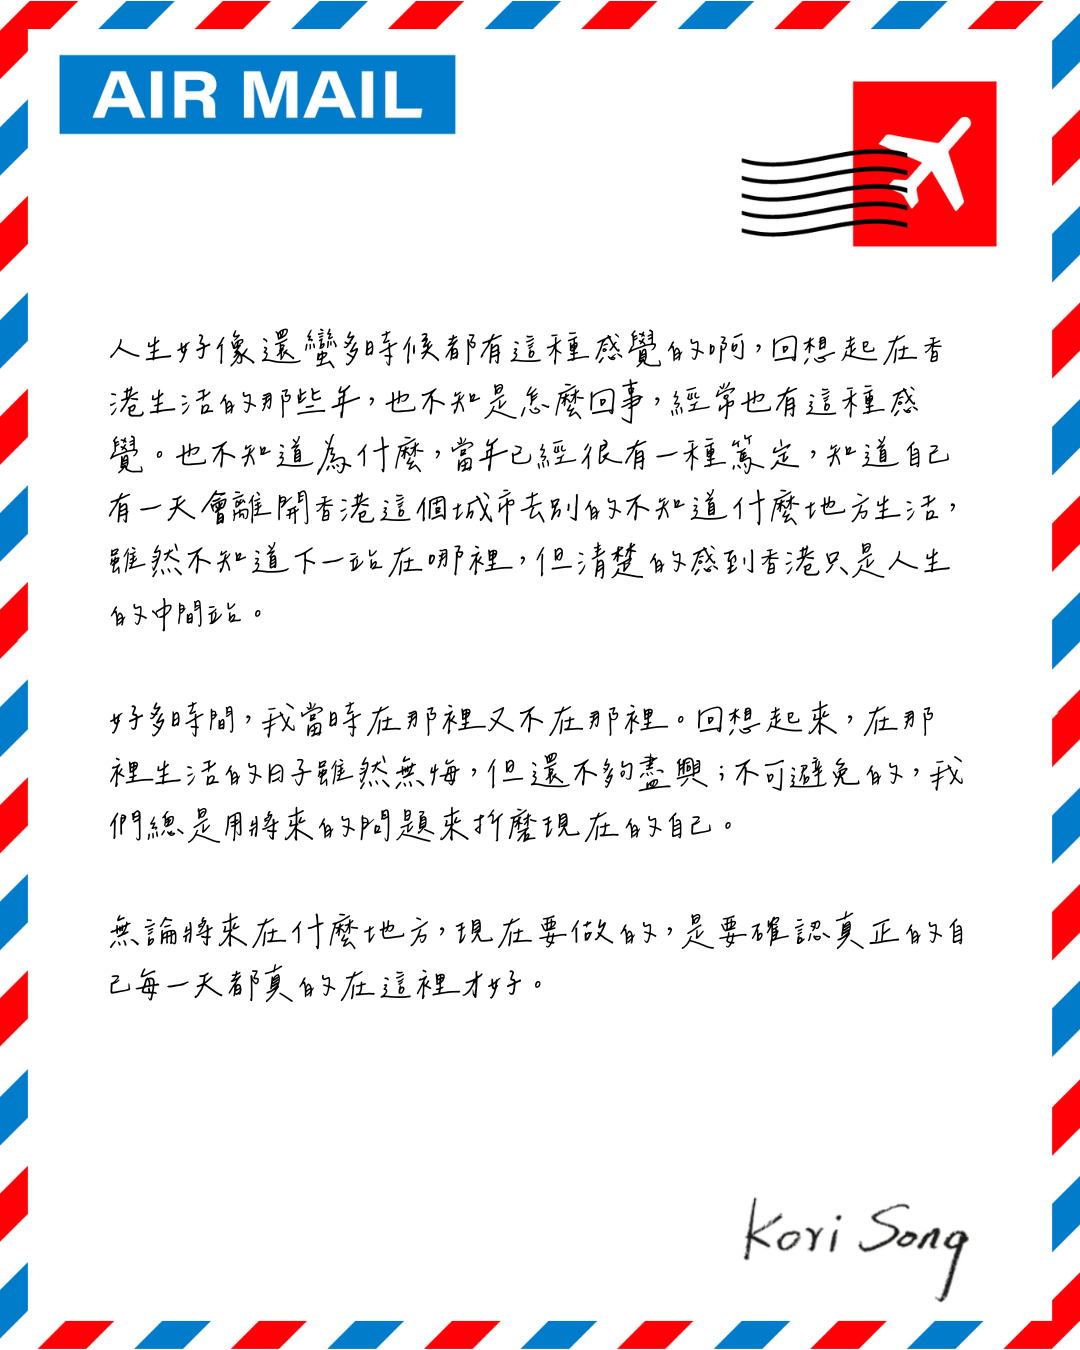 AIR MAIL
人生好像還蠻多時候都有這種感覺的啊，回想起在香
港生活的那些年，也不知是怎麼回事，經常也有這種感
覺。也不知道為什麼，當年已經很有一種篤定，知道自己
有一天會離開香港這個城市去別的不知道什麼地方生活，
雖然不知道下一站在哪裡，但清楚的感到香港只是人生
的中間站。
好多時間，我當時在那裡又不在那裡。回想起來，在那
裡生活的日子雖然無悔，但還不夠盡興；不可避免的，我
們總是用將來的問題來折磨現在的自己。
無論將來在什麼地方，現在要做的，是要確認真正的自
己每一天都真的在這裡才好。
Kori Song